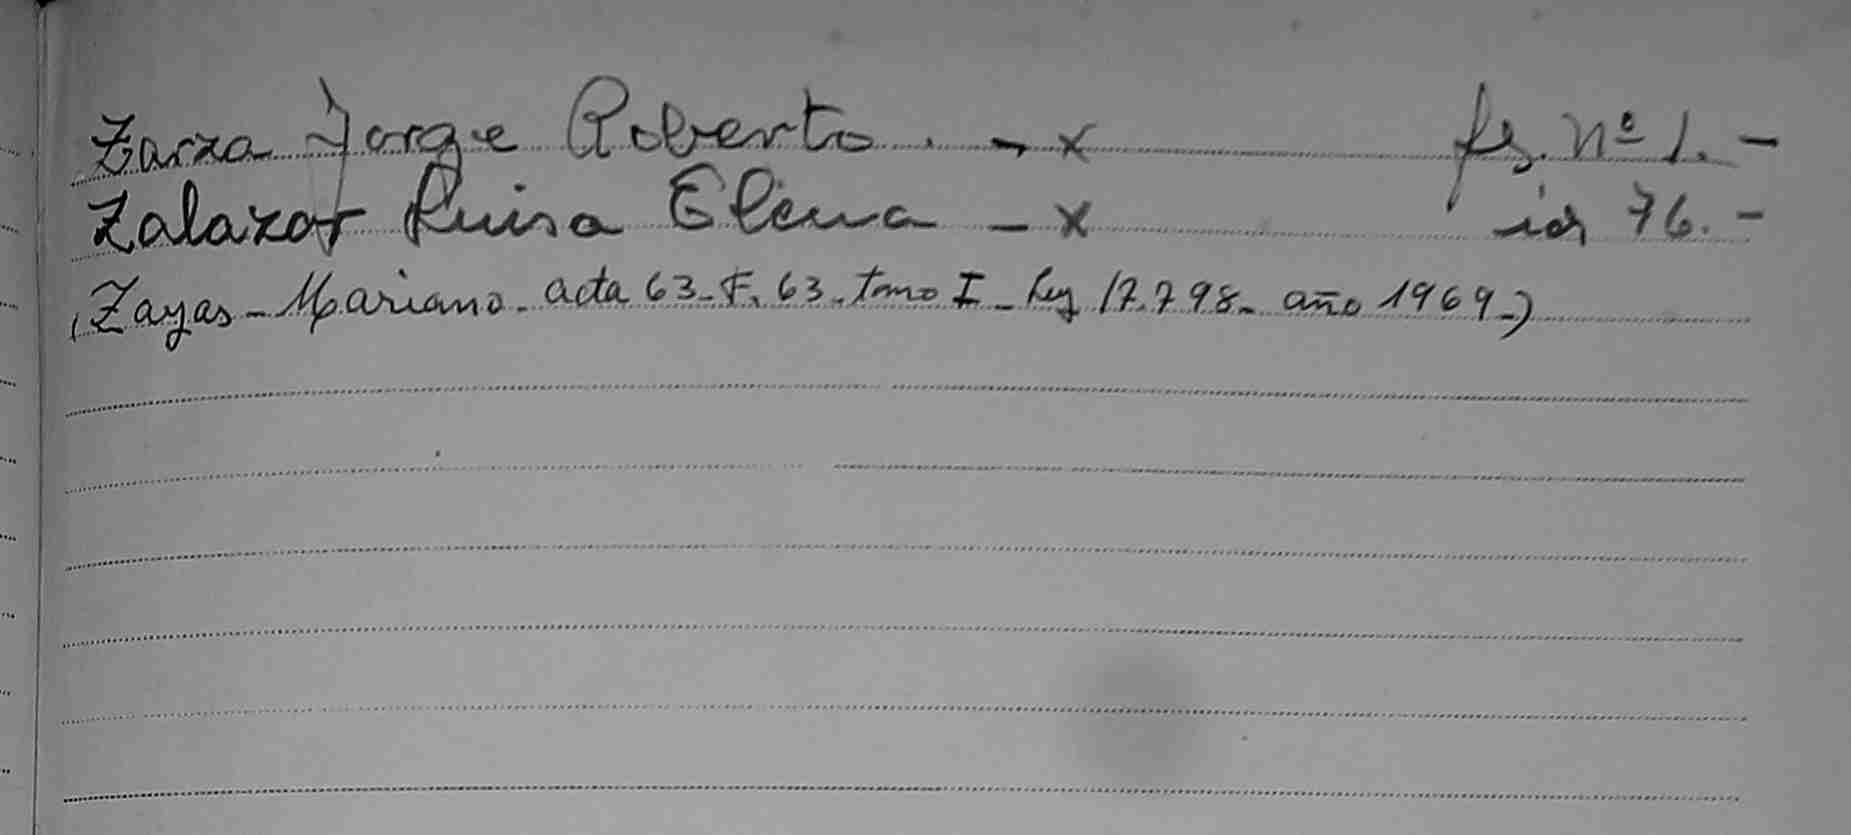 Zarza Jorge Roberto. - x fs. nº 1. -
Zalazar Luisa Elena - x id 76. -
(Zayas - Mariano - acta 63 - F. 63. tomo I - Ley 17.798 - año 1969 -)